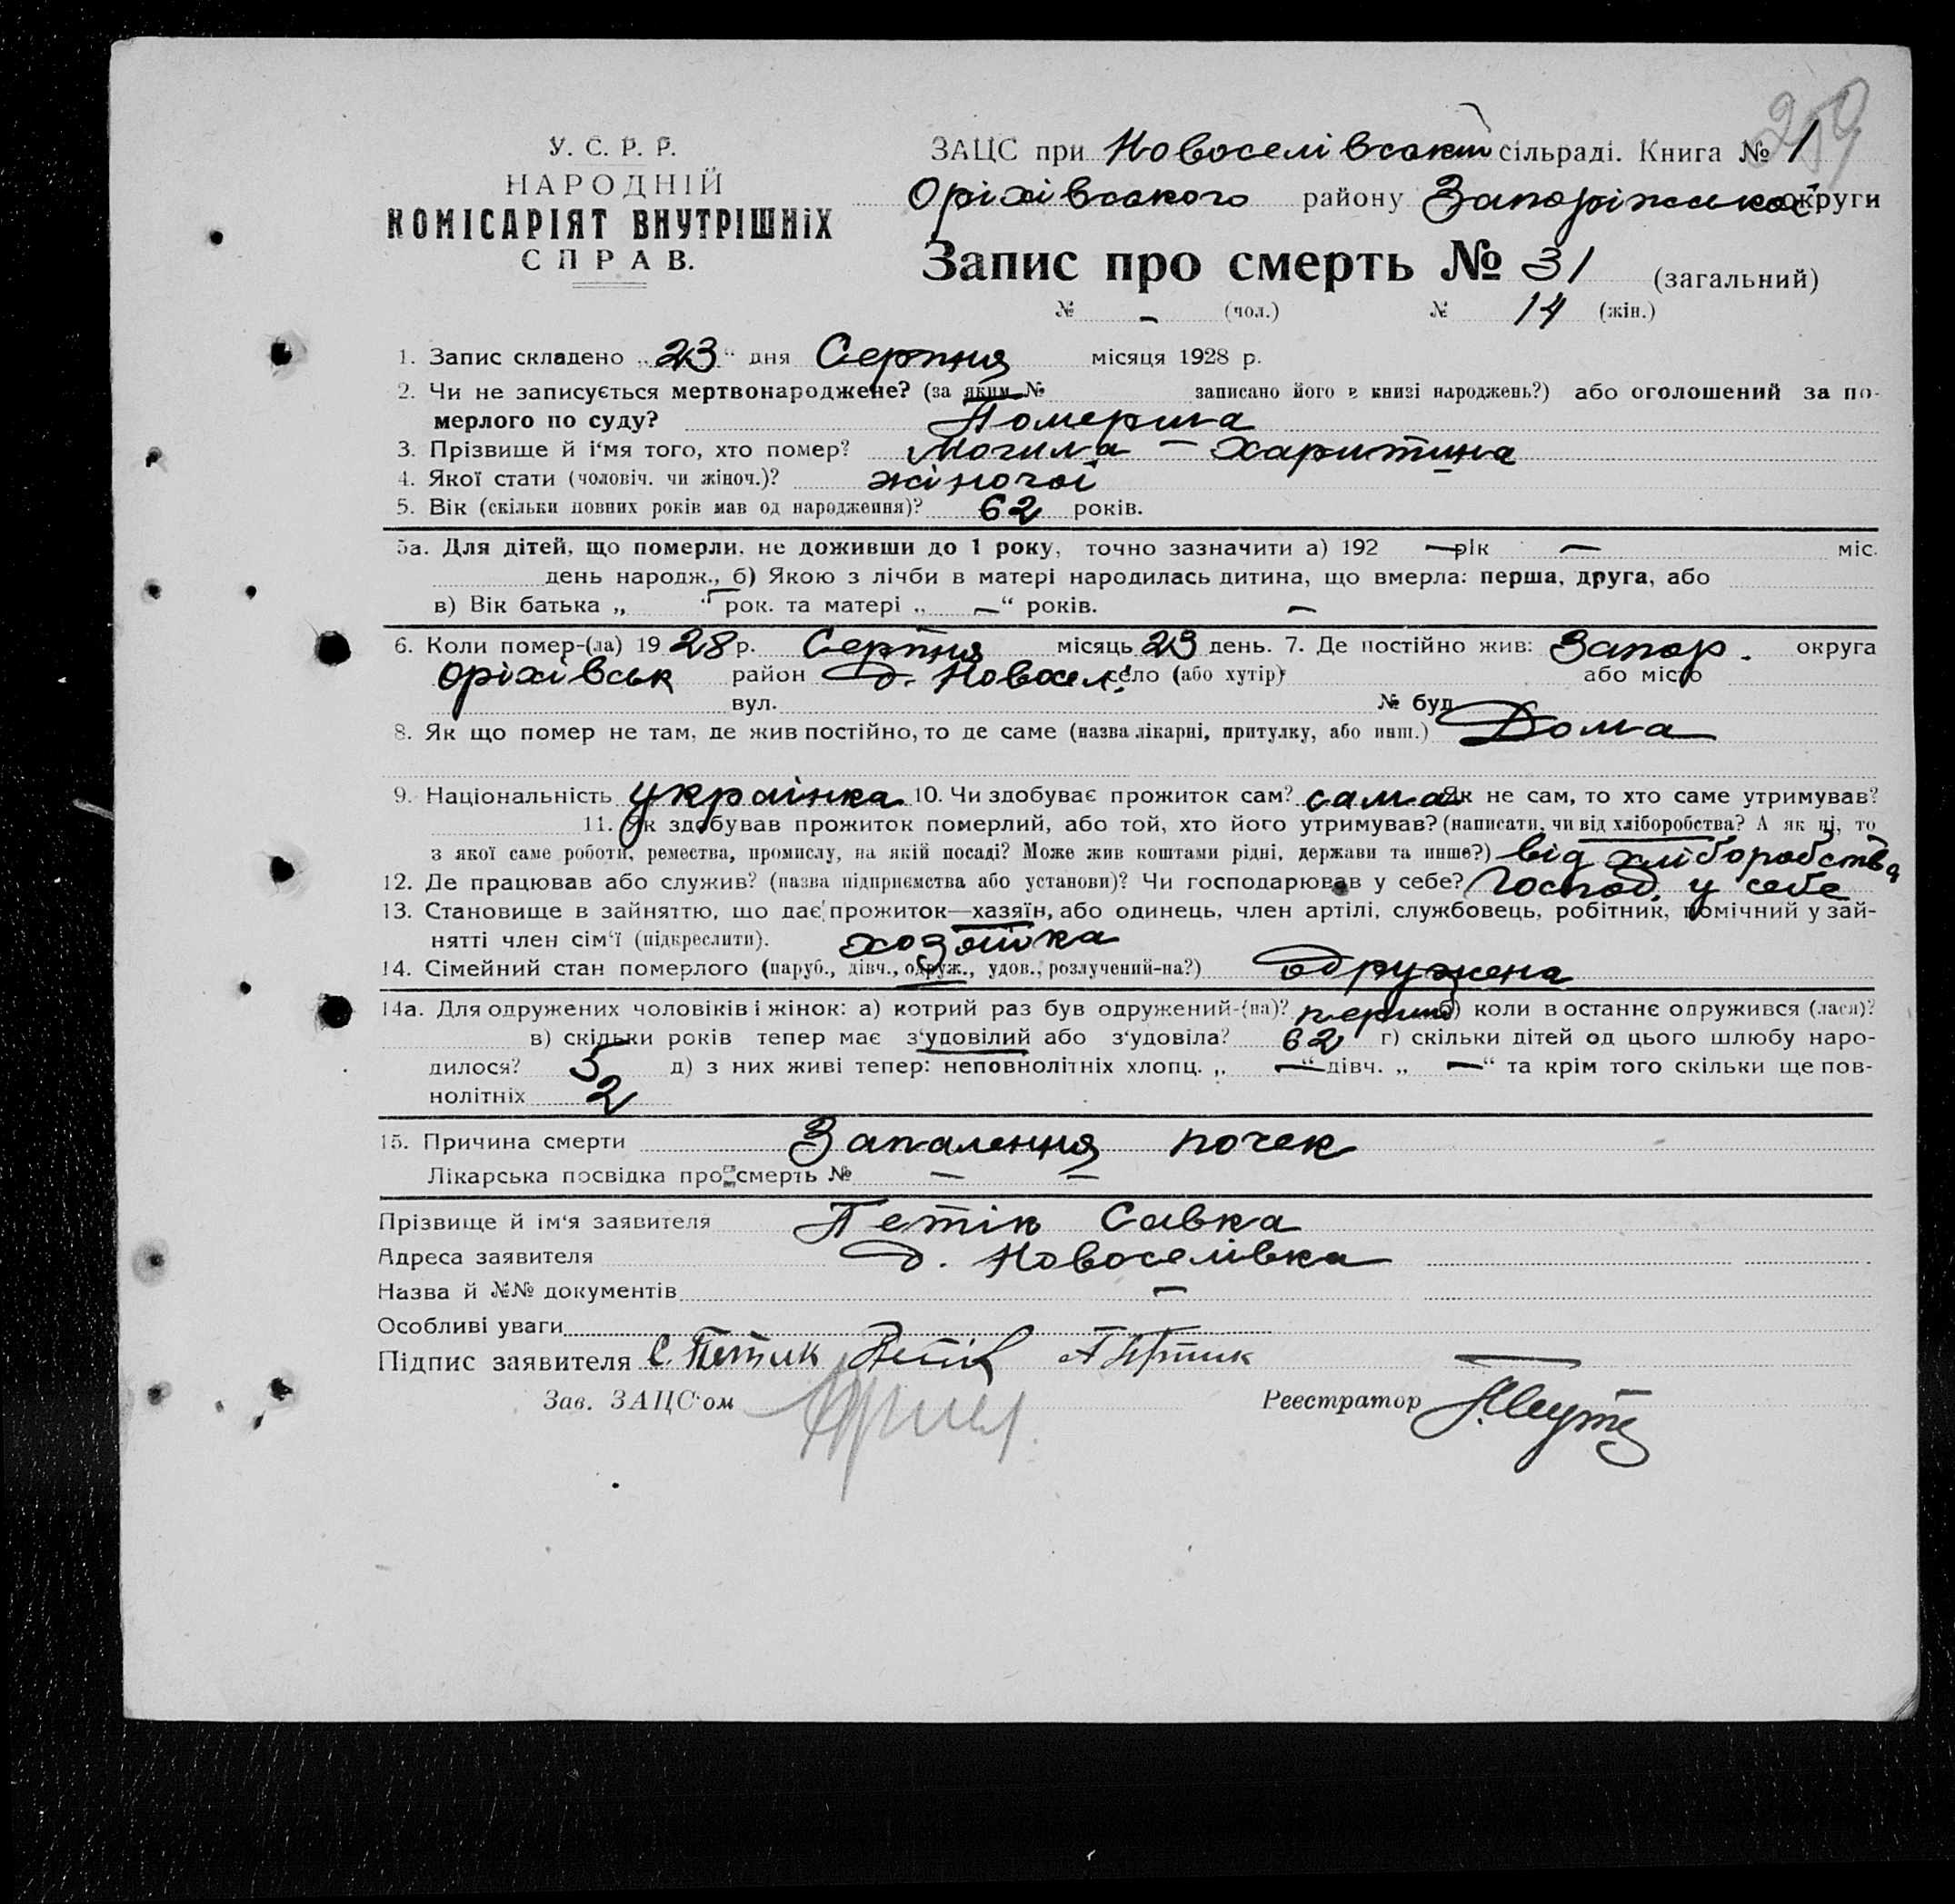 259
У. С. Р. Р.
НАРОДНІЙ
КОМІСАРІЯТ ВНУТРІШНІХ
СПРАВ.
ЗАЦС при Новоселівській сільраді. Книга № 1
Оріхівського району Запоріжської округи
Запис про смерть № 31 (загальний)
№ - (чол.) № 14 (жін.)
1. Запис складено „23“ дня Серпня місяця 1928 р.
2. Чи не записується мертвонароджене? (за яким № записано його в книзі народжень?) або оголошений за по-
мерлого по суду? Померша
3. Прізвище й і‘мя того, хто помер? Могила - Харитина
4. Якої стати (чоловіч. чи жіноч.)? жіночої
5. Вік (скільки повних років мав од народження)? 62 років.
5а. Для дітей, що померли, не доживши до 1 року, точно зазначити а) 192 — рік — міс.
день народж., б) Якою з лічби в матері народилась дитина, що вмерла: перша, друга, або
в) Вік батька „ “ рок. та матері „ — “ років. —
6. Коли помер-(ла) 1928 р. Серпня місяць 23 день. 7. Де постійно жив: Запор. округа
Оріхівськ район д. Новосел. село (або хутір) або місто
вул. № буд
8. Як що помер не там, де жив постійно, то де саме (назва лікарні, притулку, або инш.) Дома
9. Національність українка 10. Чи здобуває прожиток сам? сама Як не сам, то хто саме утримував?
11. Як здобував прожиток померлий, або той, хто його утримував? (написати, чи від хліборобства? А як ні, то
з якої саме роботи, ремества, промислу, на якій посаді? Може жив коштами рідні, держави та инше?) від хліборобства
12. Де працював або служив? (назва підприємства або установи)? Чи господарював у себе? Господ. у себе
13. Становище в зайняттю, що дає прожиток—хазяїн, або одинець, член артілі, службовець, робітник, помічний у зай-
нятті член сім‘ї (підкреслити). хозяйка
14. Сімейний стан померлого (паруб., дівч., одруж., удов., розлучений-на?) одружена
14а. Для одружених чоловіків і жінок: а) котрий раз був одружений-(на)? перший б) коли востаннє одружився (лася)?
в) скільки років тепер має з‘удовілий або з‘удовіла? 62 г) скільки дітей од цього шлюбу наро-
дилося? 5 д) з них живі тепер: неповнолітніх хлопц. „ — “ дівч. „ — “ та крім того скільки ще пов-
нолітніх 2
15. Причина смерти Запалення почек
Лікарська посвідка про смерть № — —
Прізвище й ім‘я заявителя Петік Савка
Адреса заявителя д. Новоселівка
Назва й №№ документів —
Особливі уваги
Підпис заявителя С. Петик Петік А Петик —
Зав. ЗАЦС‘ом
Реєстратор